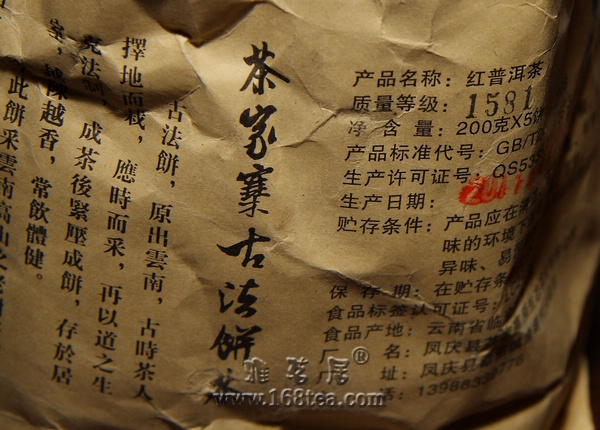 茶家寨古法餅茶
古法餅，原出雲南，古時茶人
擇地而栽，應時而采，再以道之生
成茶後緊壓成餅，存於居
越香，常飲體健。
此餅采雲南高山之
产品名称：红普洱茶
质量等级：1581
净 含 量：200克X5
产品标准代号：GB/T
生产许可证号：QS53
生产日期：
贮存条件：产品应在
味的环境下
异味、易
保 存 期：在贮存条
食品标签认可证号：
食品产地：云南省临
厂 名：凤庆县
厂 址：凤庆县
电 话：13988339776
雅茗居®
www.168tea.com